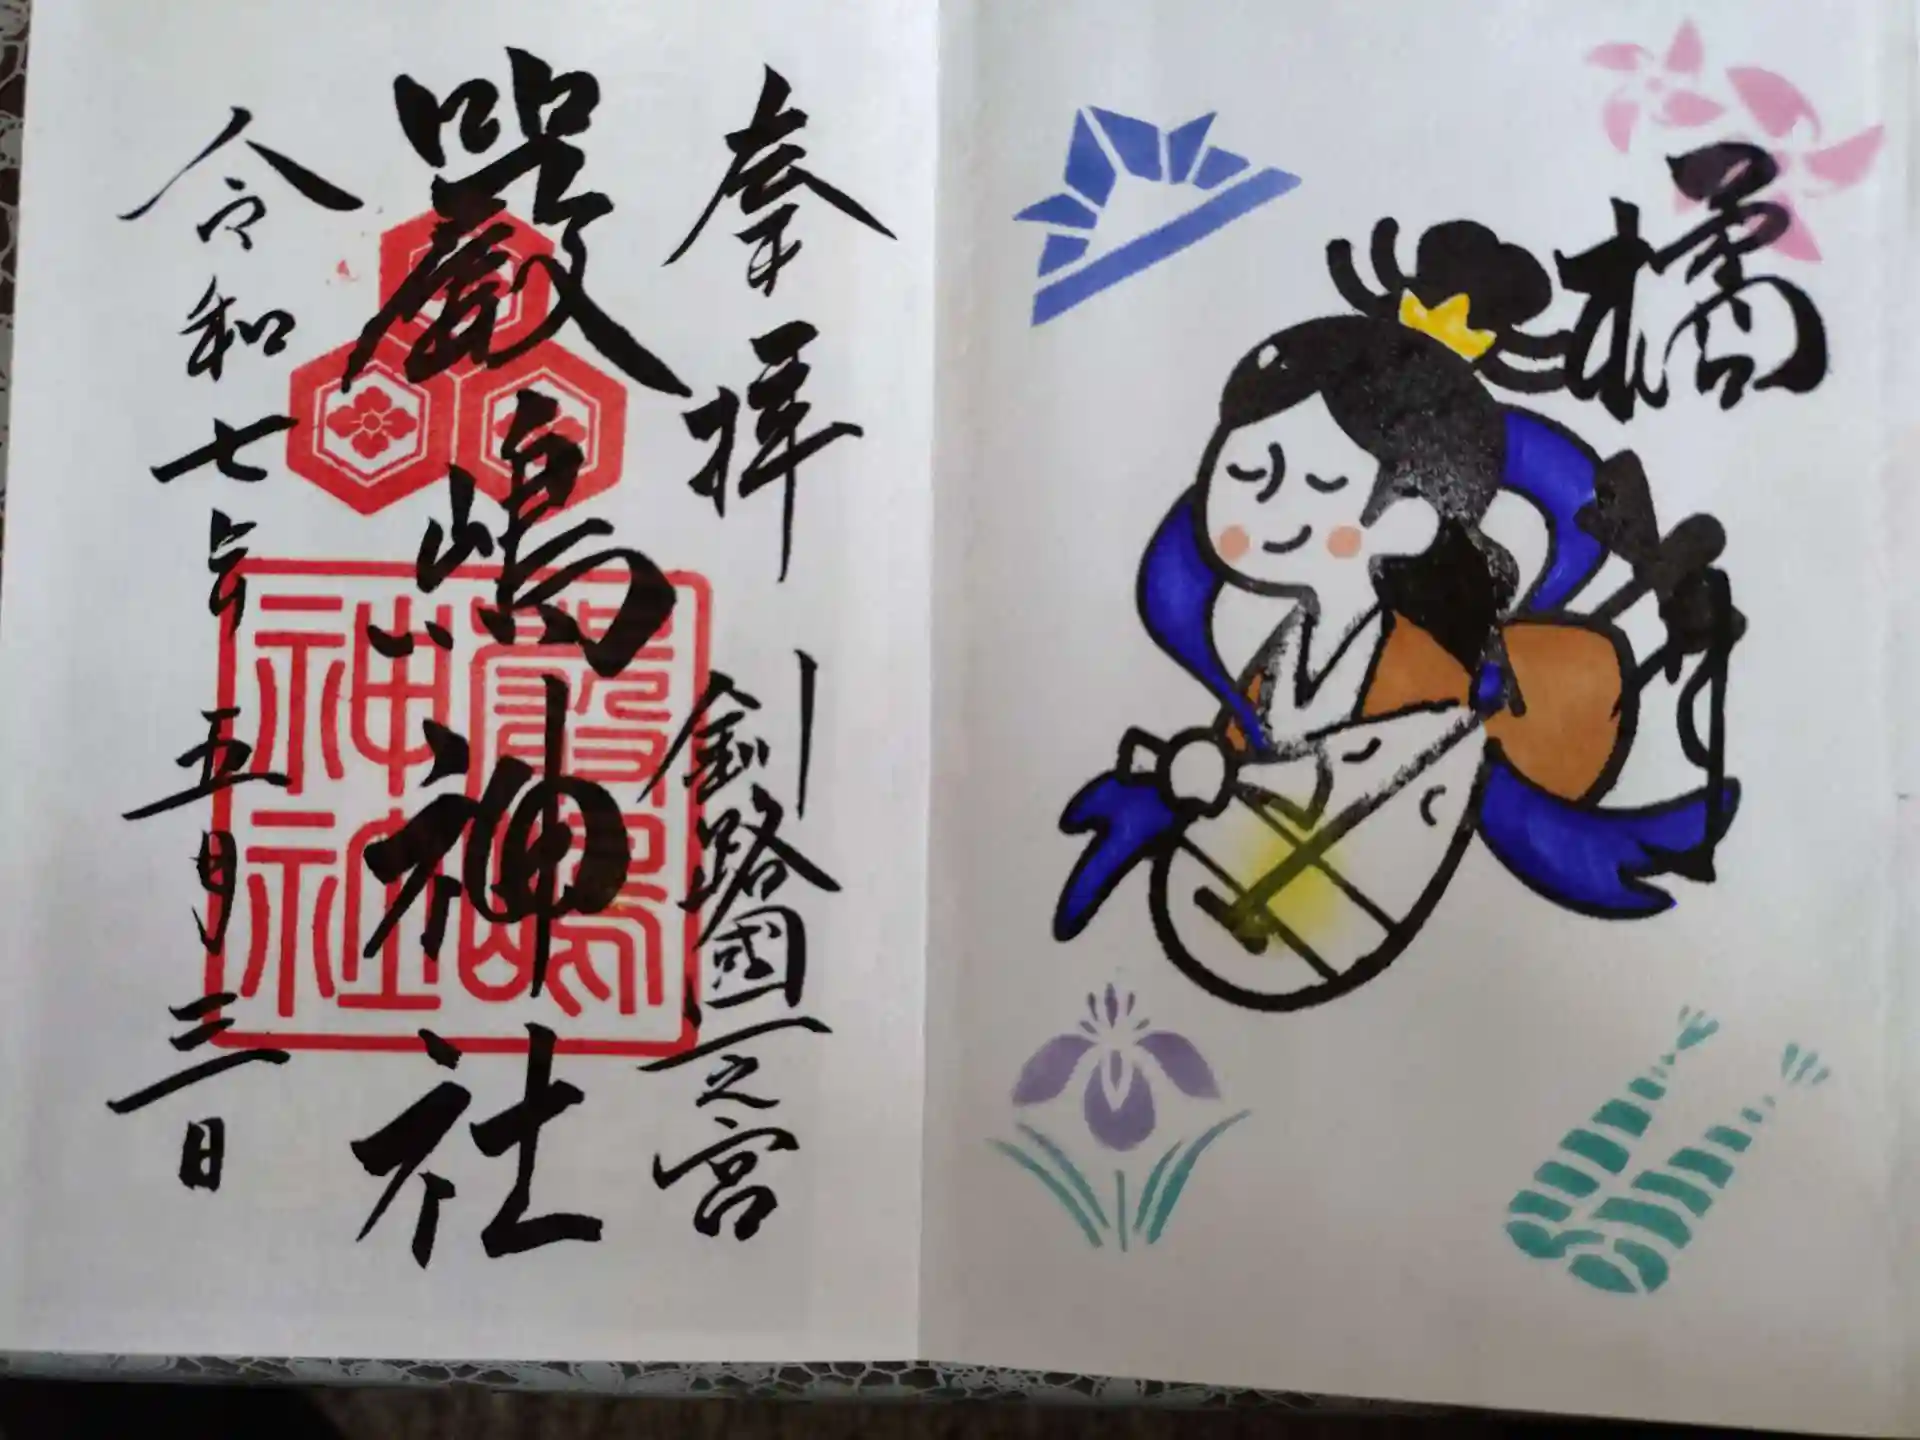 橘
奉拝
釧路國一之宮
嚴嶋神社
令和七年五月三日
嚴嶋
神社